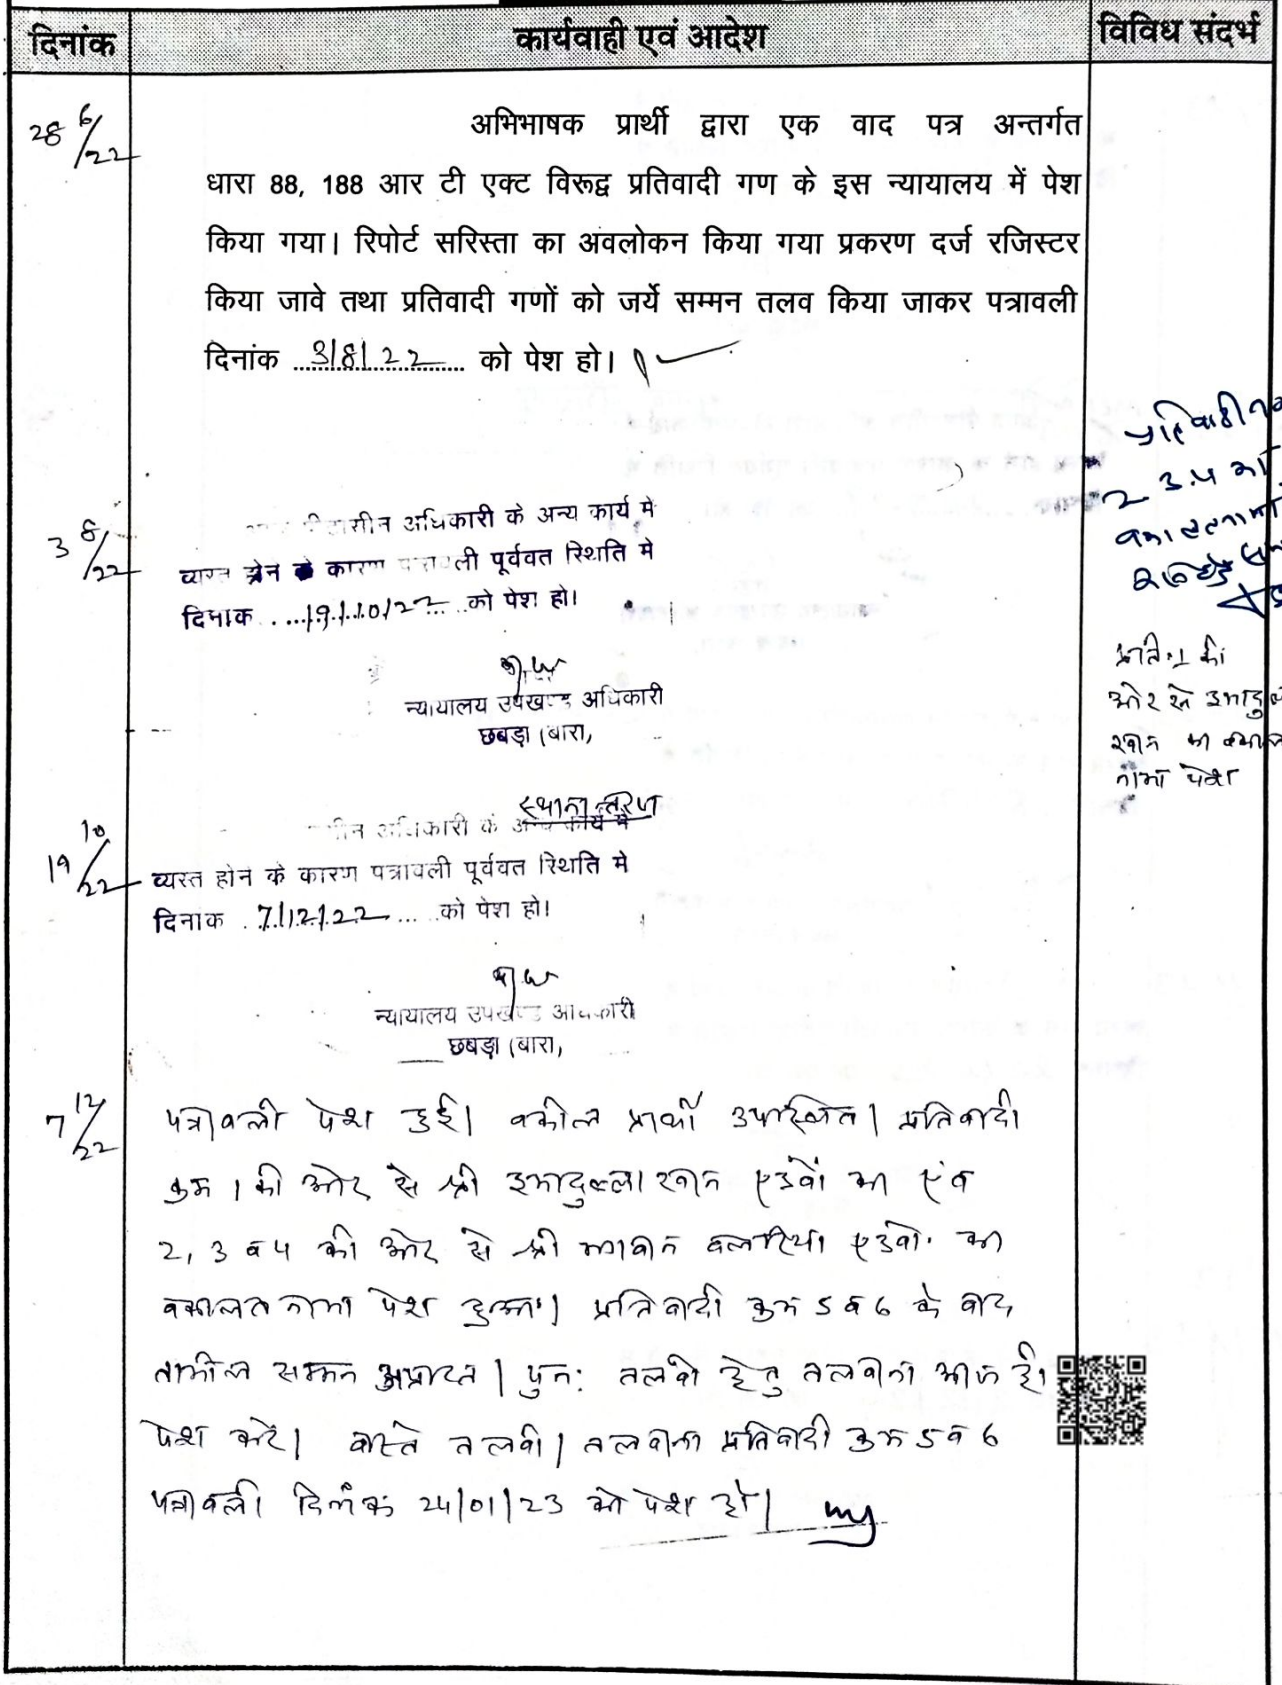 दिनांक
कार्यवाही एवं आदेश
विविध संदर्भ
28 6/22
अभिभाषक प्रार्थी द्वारा एक वाद पत्र अन्तर्गत
धारा 88, 188 आर टी एक्ट विरूद्व प्रतिवादी गण के इस न्यायालय में पेश
किया गया। रिपोर्ट सरिस्ता का अवलोकन किया गया प्रकरण दर्ज रजिस्टर
किया जावे तथा प्रतिवादी गणों को जर्ये सम्मन तलव किया जाकर पत्रावली
दिनांक 3/8/22 को पेश हो।
3 8/22
अधिकारी के अन्य कार्य मे
व्यस्त होने के कारण पत्रावली पूर्ववत स्थिति मे
दिनाक 19/10/22 को पेश हो।
न्यायालय उपखण्ड अधिकारी
छबड़ा (बारा,
प्रतिवादी
2 3.4 का
प्रति.1 की
ओर से
खान का
नामा पेश
19 10/22
स्थानान्तरण
अधिकारी के अन्य कार्य मे
व्यस्त होने के कारण पत्रावली पूर्ववत स्थिति मे
दिनाक 7/12/22 को पेश हो।
न्यायालय उपखण्ड अधिकारी
छबड़ा (बारा,
7 12/22
पत्रावली पेश हुई। वकील प्रार्थी उपस्थित। प्रतिवादी
क्रम 1 की ओर से श्री इमादुल्ला खान एडवो का एंव
2, 3 व 4 की ओर से श्री एडवो. का
वकालतनामा पेश हुआ। प्रतिवादी क्रम 5 व 6 के बाद
तामील सम्मन अप्राप्त। पुन: तलवी हेतु तलवाना आज ही
पेश करे। वास्ते तलवी। तलवाना प्रतिवादी क्रम 5 व 6
पत्रावली दिनांक 24/01/23 को पेश हो।